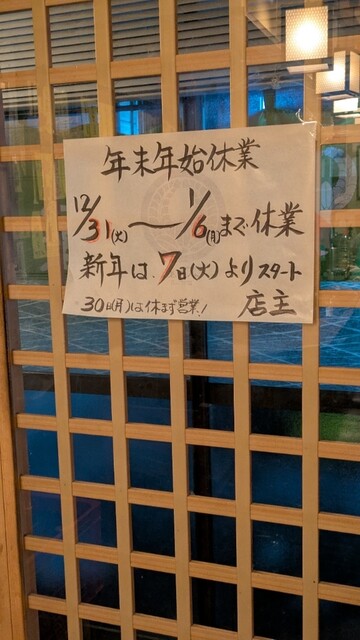 年末年始休業
12/31(火)〜1/6(月)まで休業
新年は、7日(火)よりスタート
30日(月)は休まず営業! 店主